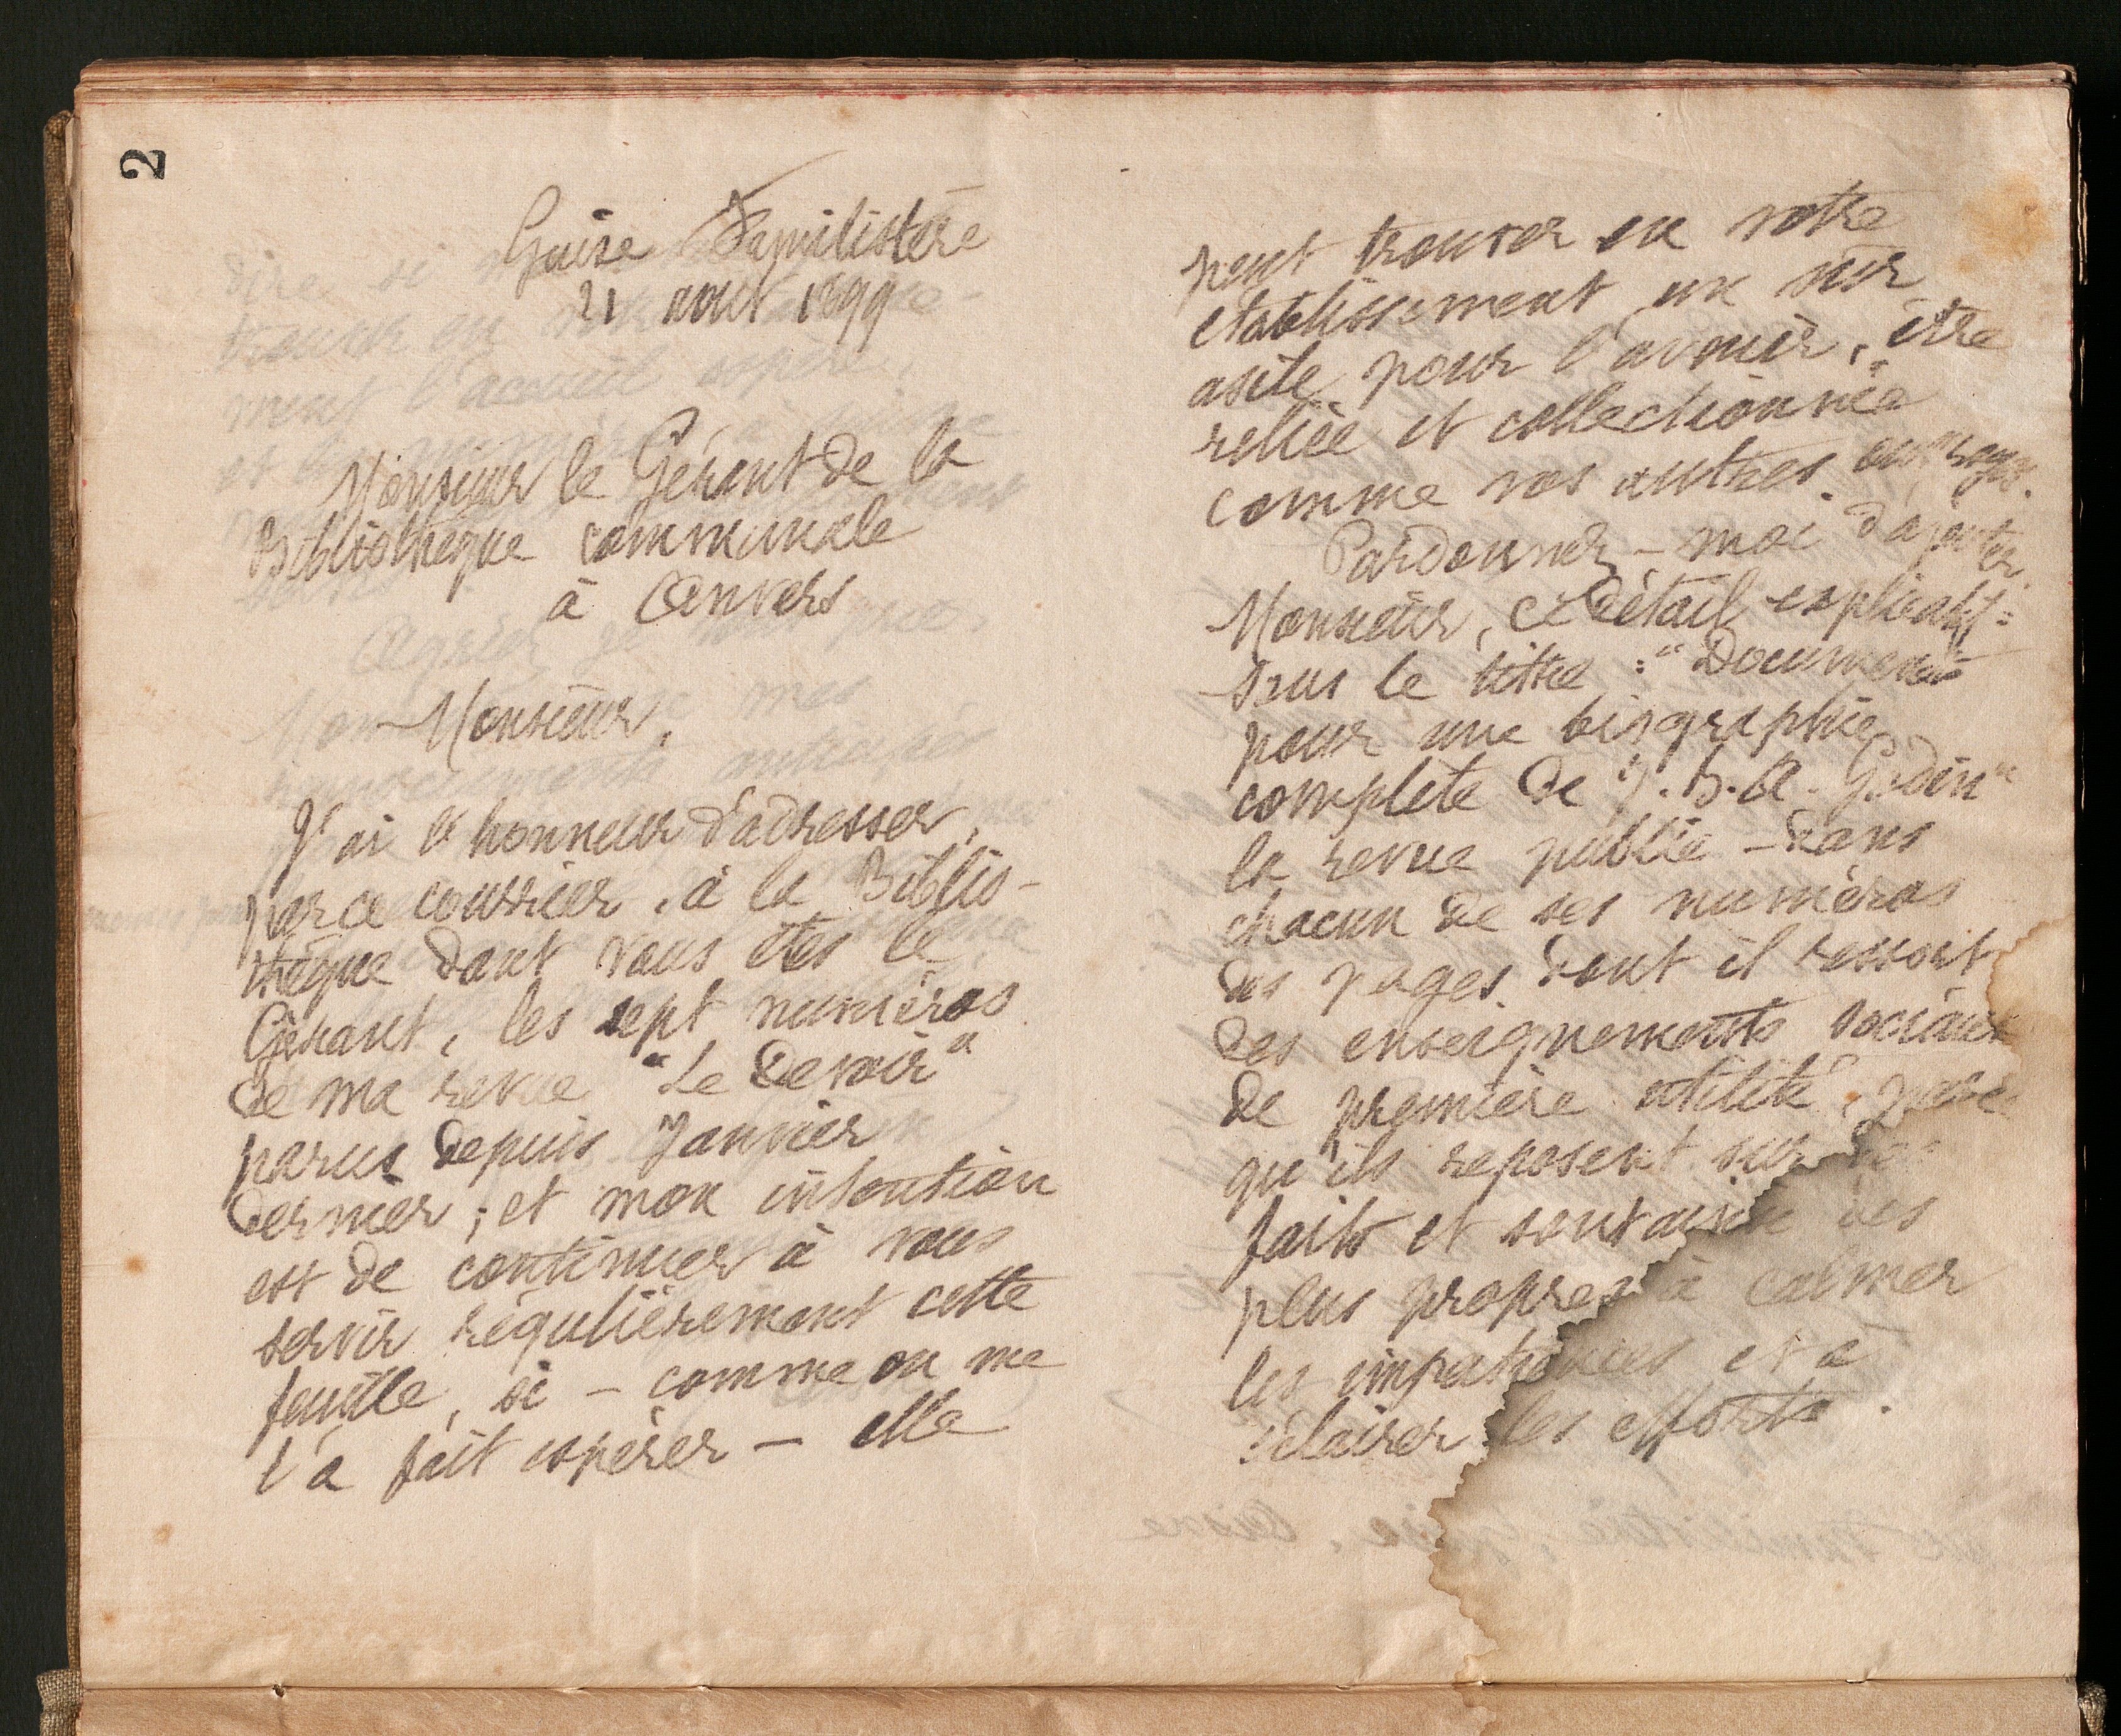 2
Guise Familistère
21 aout 1899
Monsieur le Gérant de la
Bibliothèque communale
à Anvers
Monsieur,
J'ai l'honneur d'adresser,
par ce courrier, à la Biblio-
thèque dont vous êtes le
Gérant, les sept numéros
de ma revue "Le Devoir"
parus depuis Janvier
dernier ; et mon intention
est de continuer à vous
servir régulièrement cette
feuille, si - comme on me
l'a fait espérer - elle
peut trouver en votre
établissement un sûr
asile pour l'avenir, être
reliée et collectionnée
comme vos autres ouvrages.
Pardonnez-moi d'ajouter,
Monsieur, ce détail explicatif :
Sous le titre : "Documents
pour une biographie
complète de J.B.A. Godin"
la revue publie - dans
chacun de ses numéros
des pages dont il ressort
des enseignements sociaux
de première utilité, parce
qu'ils reposent sur des
faits et sont ainsi les
plus propres à calmer
les impatiences et à
éclairer les efforts.